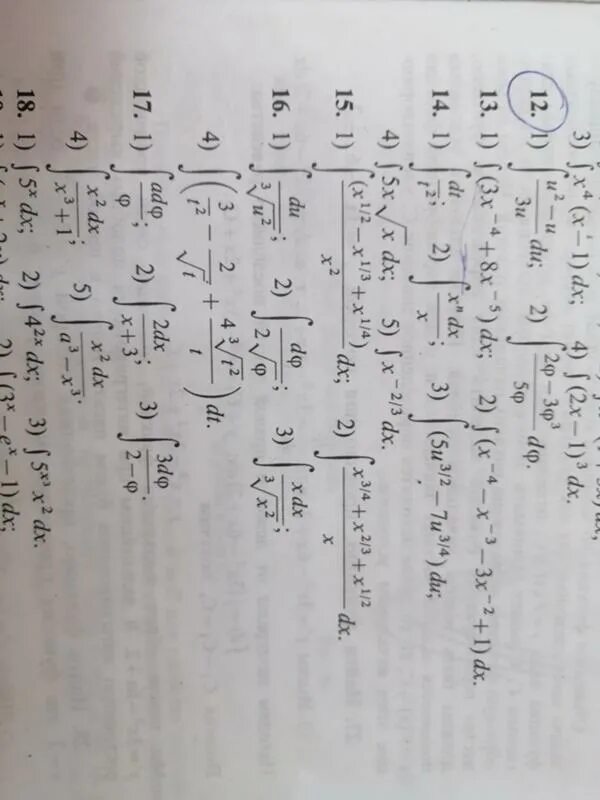 3) ∫ x⁴ (x − 1) dx; 4) ∫ (2x − 1)³ dx.
12. 1) ∫ (u² − u)/(3u) du; 2) ∫ (2φ − 3φ³)/(5φ) dφ.
13. 1) ∫ (3x⁻⁴ + 8x⁻⁵) dx; 2) ∫ (x⁻⁴ − x⁻³ − 3x⁻² + 1) dx.
14. 1) ∫ dt/t²; 2) ∫ xⁿ dx/x; 3) ∫ (5u^{3/2} − 7u^{3/4}) du;
4) ∫ 5x√x dx; 5) ∫ x^{−2/3} dx.
15. 1) ∫ (x^{1/2} − x^{1/3} + x^{1/4})/x² dx; 2) ∫ (x^{3/4} + x^{2/3} + x^{1/2})/x dx.
16. 1) ∫ du/∛u²; 2) ∫ dφ/(2√φ); 3) ∫ x dx/∛x²;
4) ∫ (3/t² − 2/√t + 4∛t²/t) dt.
17. 1) ∫ adφ/φ; 2) ∫ 2dx/(x + 3); 3) ∫ 3dφ/(2 − φ).
4) ∫ x² dx/(x³ + 1); 5) ∫ x² dx/(a³ − x³).
18. 1) ∫ 5ˣ dx; 2) ∫ 4²ˣ dx; 3) ∫ 5^{x³} x² dx.
2) ∫ (3ˣ − eˣ − 1) dx;